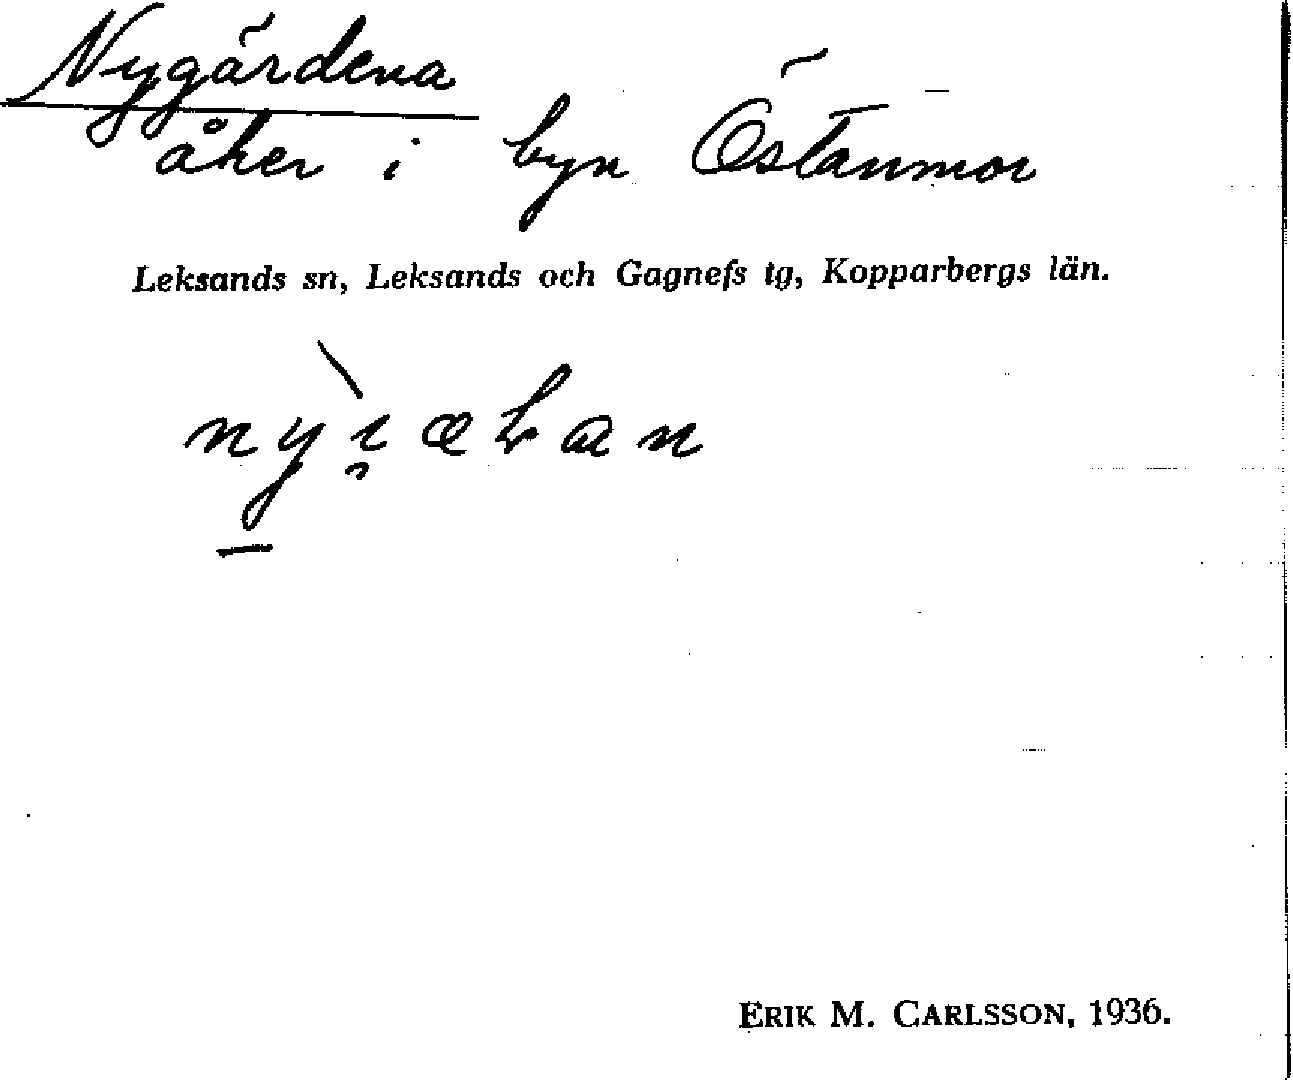 Nygärdena
åker i byn Östanmor
Leksands sn, Leksands och Gagnefs tg, Kopparbergs län.
ERIK M. CARLSSON, 1936.